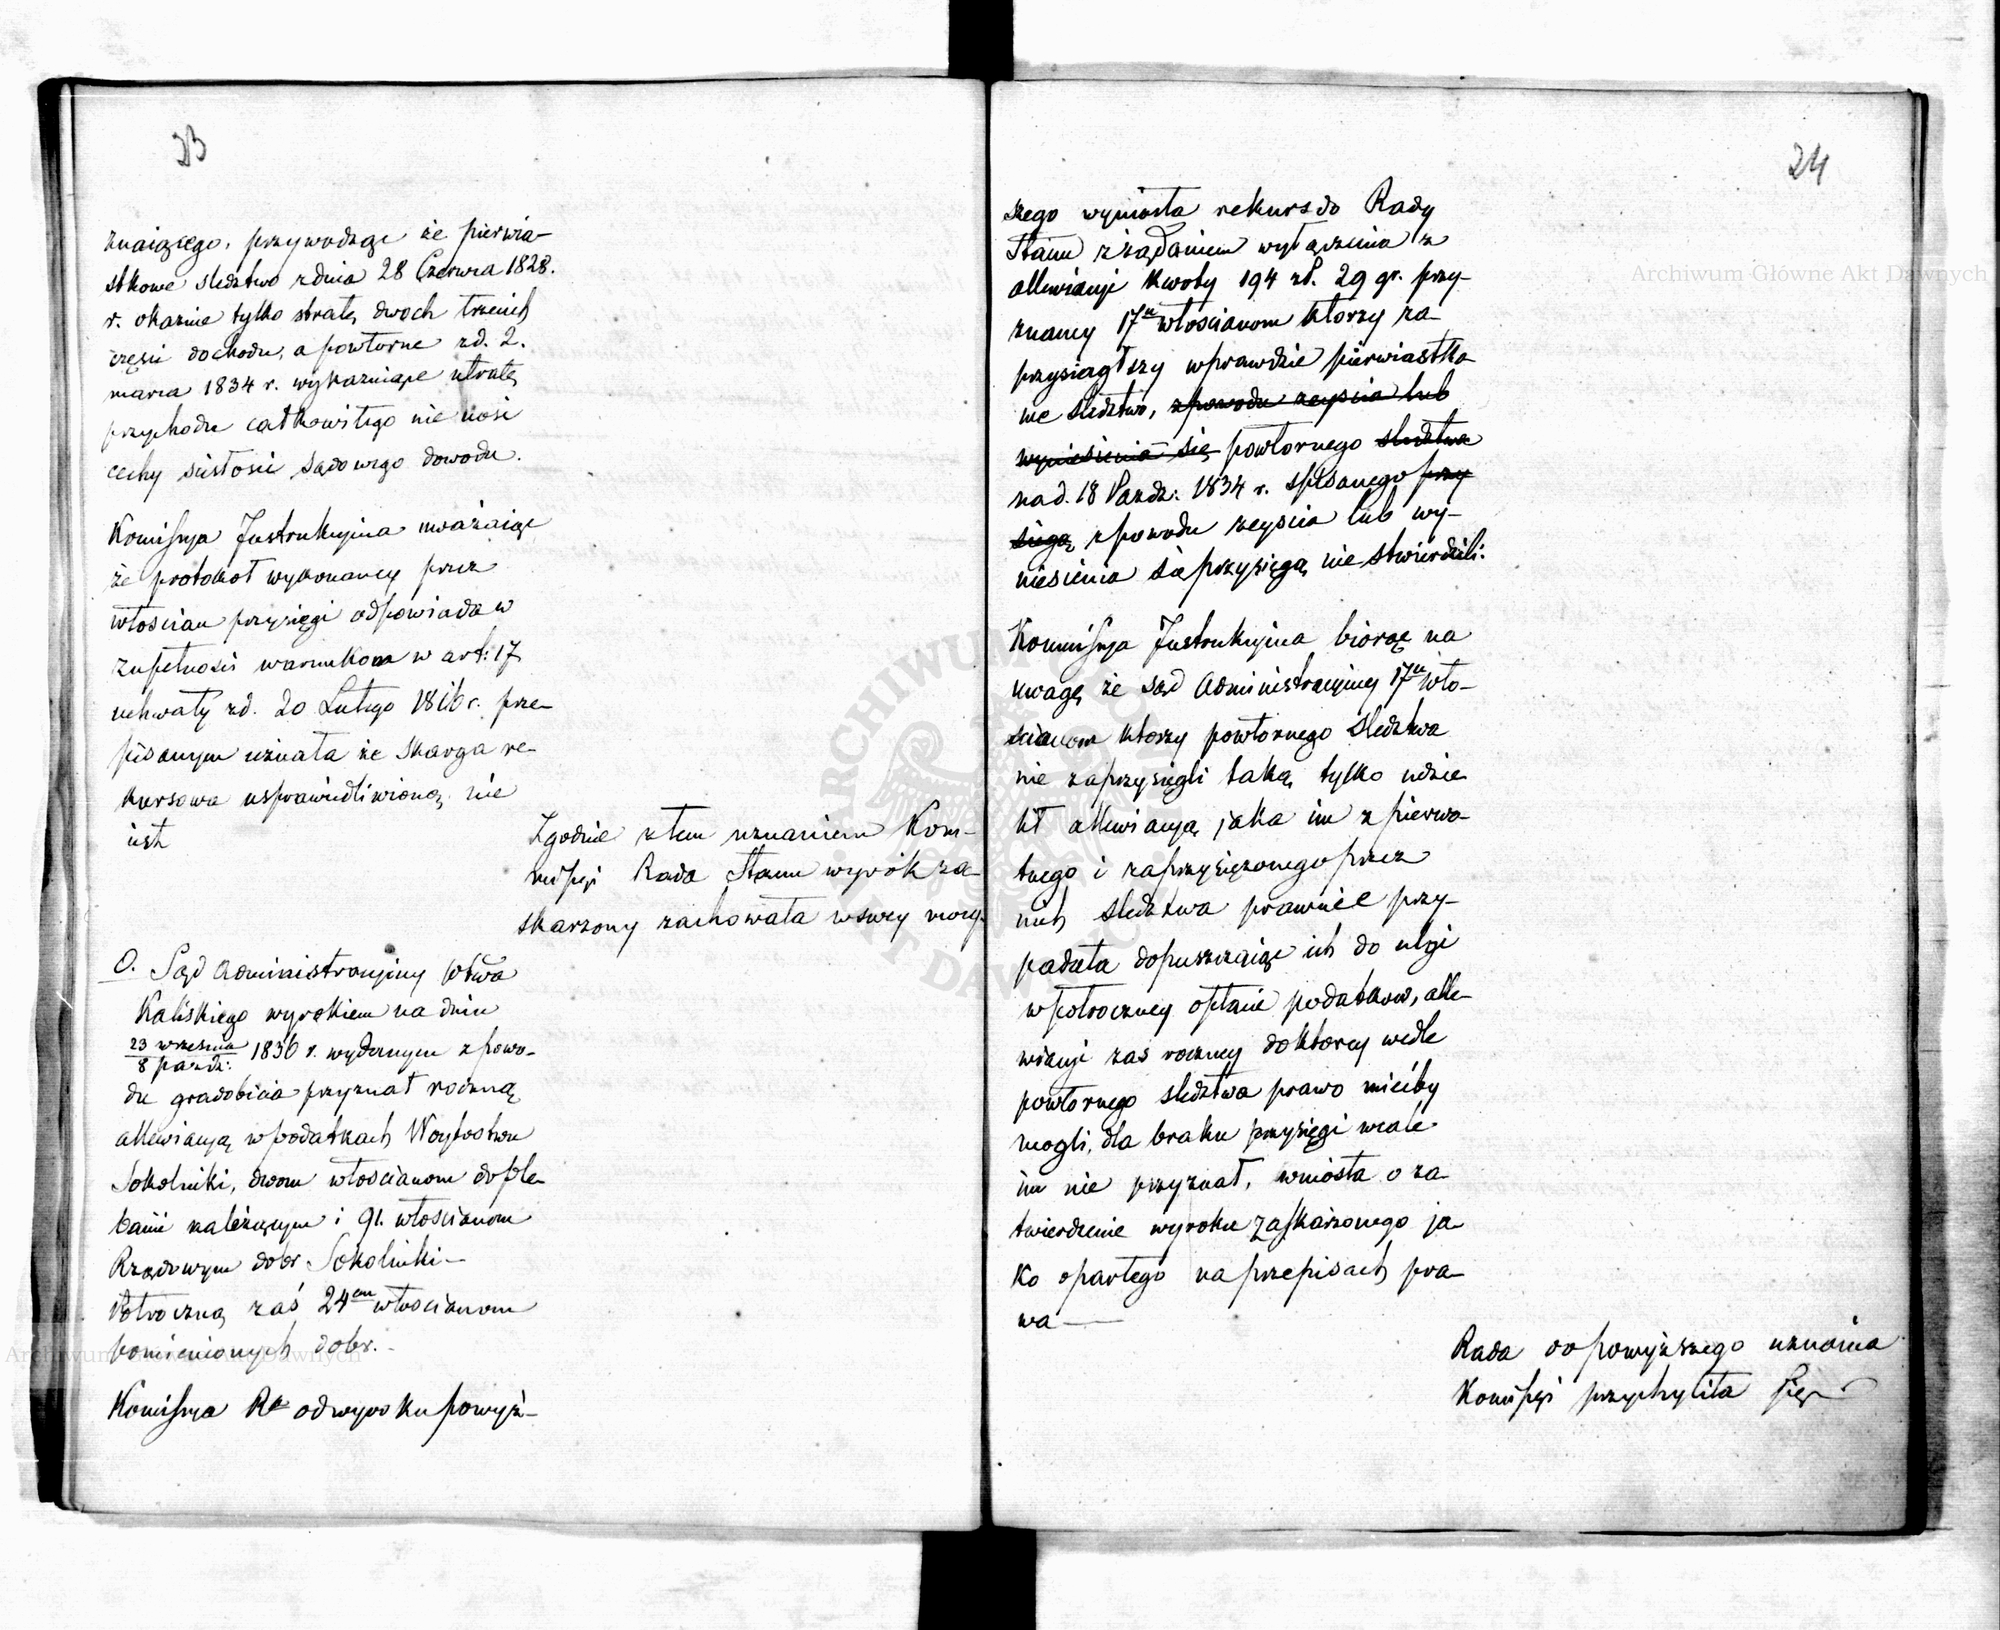 23
znaiącego, przywodząc że pierwia-
stkowe śledztwo z dnia 28 Czerwca 1828.
r. okazuie tylko stratę dwóch trzecich
części dochodu, a powtórne z d. 2.
marca 1834 r. wykazuiące utratę
przychodu całkowitego nie nosi
cechy ścisłości sądowego dowodu.
Kommissya Instrukcyina uważaiąc
że protokół wykonaney przez
włościan przysięgi odpowiada w
zupełności warunkom w art: 17
uchwały z d. 20 Lutego 1816 r. prze-
pisanym uznała że skarga re-
kursowa usprawiedliwioną nie
iest
Zgodnie z tem uznaniem Kom-
missyi Rada Stanu wyrok za-
skarżony zachowała w swey mocy.
O. Sąd Administracyiny Wdztwa
Kaliskiego wyrokiem na dniu
23 września
8 paźdz: 1836 r. wydanym z powo-
du gradobicia przyznał roczną
allewiacyą w podatkach Woytostwu
Sokolniki, dwom włościanom do ple-
banii należącym i 91. włościanom
Rządowym dobr Sokolniki –
Półroczną zaś 24em włościanom
pomienionych dobr. –
Komissya Rz od wyroku powyż-
24
szego wyniosła rekurs do Rady
Stanu z żądaniem wyłączenia z
allewiacyi kwoty 194 zł. 29 gr. przy-
znaney 17u włościanom którzy za-
przysiągłszy wprawdzie pierwiastko
we śledztwo, z powodu zeyścia lub
wyniesienia się powtórnego śledztwa
na d. 18 Paźdz: 1834 r. spisanego przy
sięgą z powodu zeyścia lub wy-
niesienia się przysięgą nie stwierdzili.
Kommissya Instrukcyina biorąc na
uwagę że sąd Administracyiny 17u wło-
ścianom którzy powtórnego śledztwa
nie zaprzysięgli taką tylko udzie
lił allewiacyą jaka im z pierwo-
tnego i zaprzysiężonego przez
nich śledztwa prawnie przy-
padała dopuszczaiąc ich do ulgi
w półroczney opłacie podatków, alle-
wiacyi zaś roczney do ktorey wedle
powtórnego śledztwa prawo miećby
mogli, dla braku przysięgi wcale
im nie przyznał, wniosła o za-
twierdzenie wyroku zaskarżonego ja-
ko opartego na przepisach pra-
wa —
Rada do powyższego uznania
Komissyi przychyliła się
Archiwum Główne Akt Dawnych